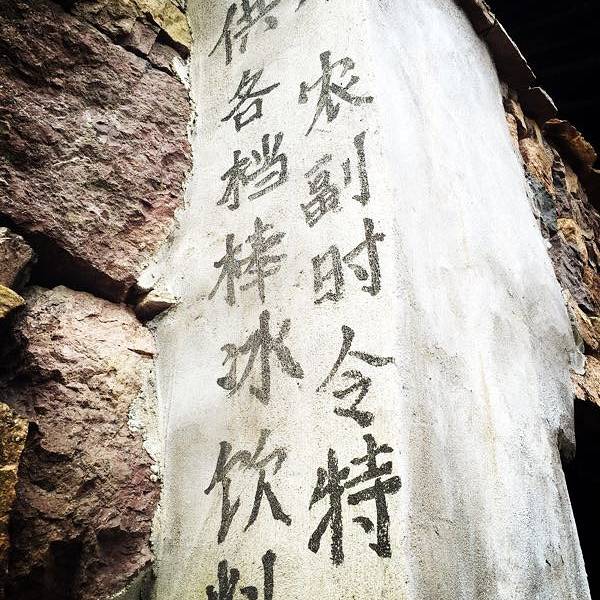 农副时令特
供各档棒冰饮料